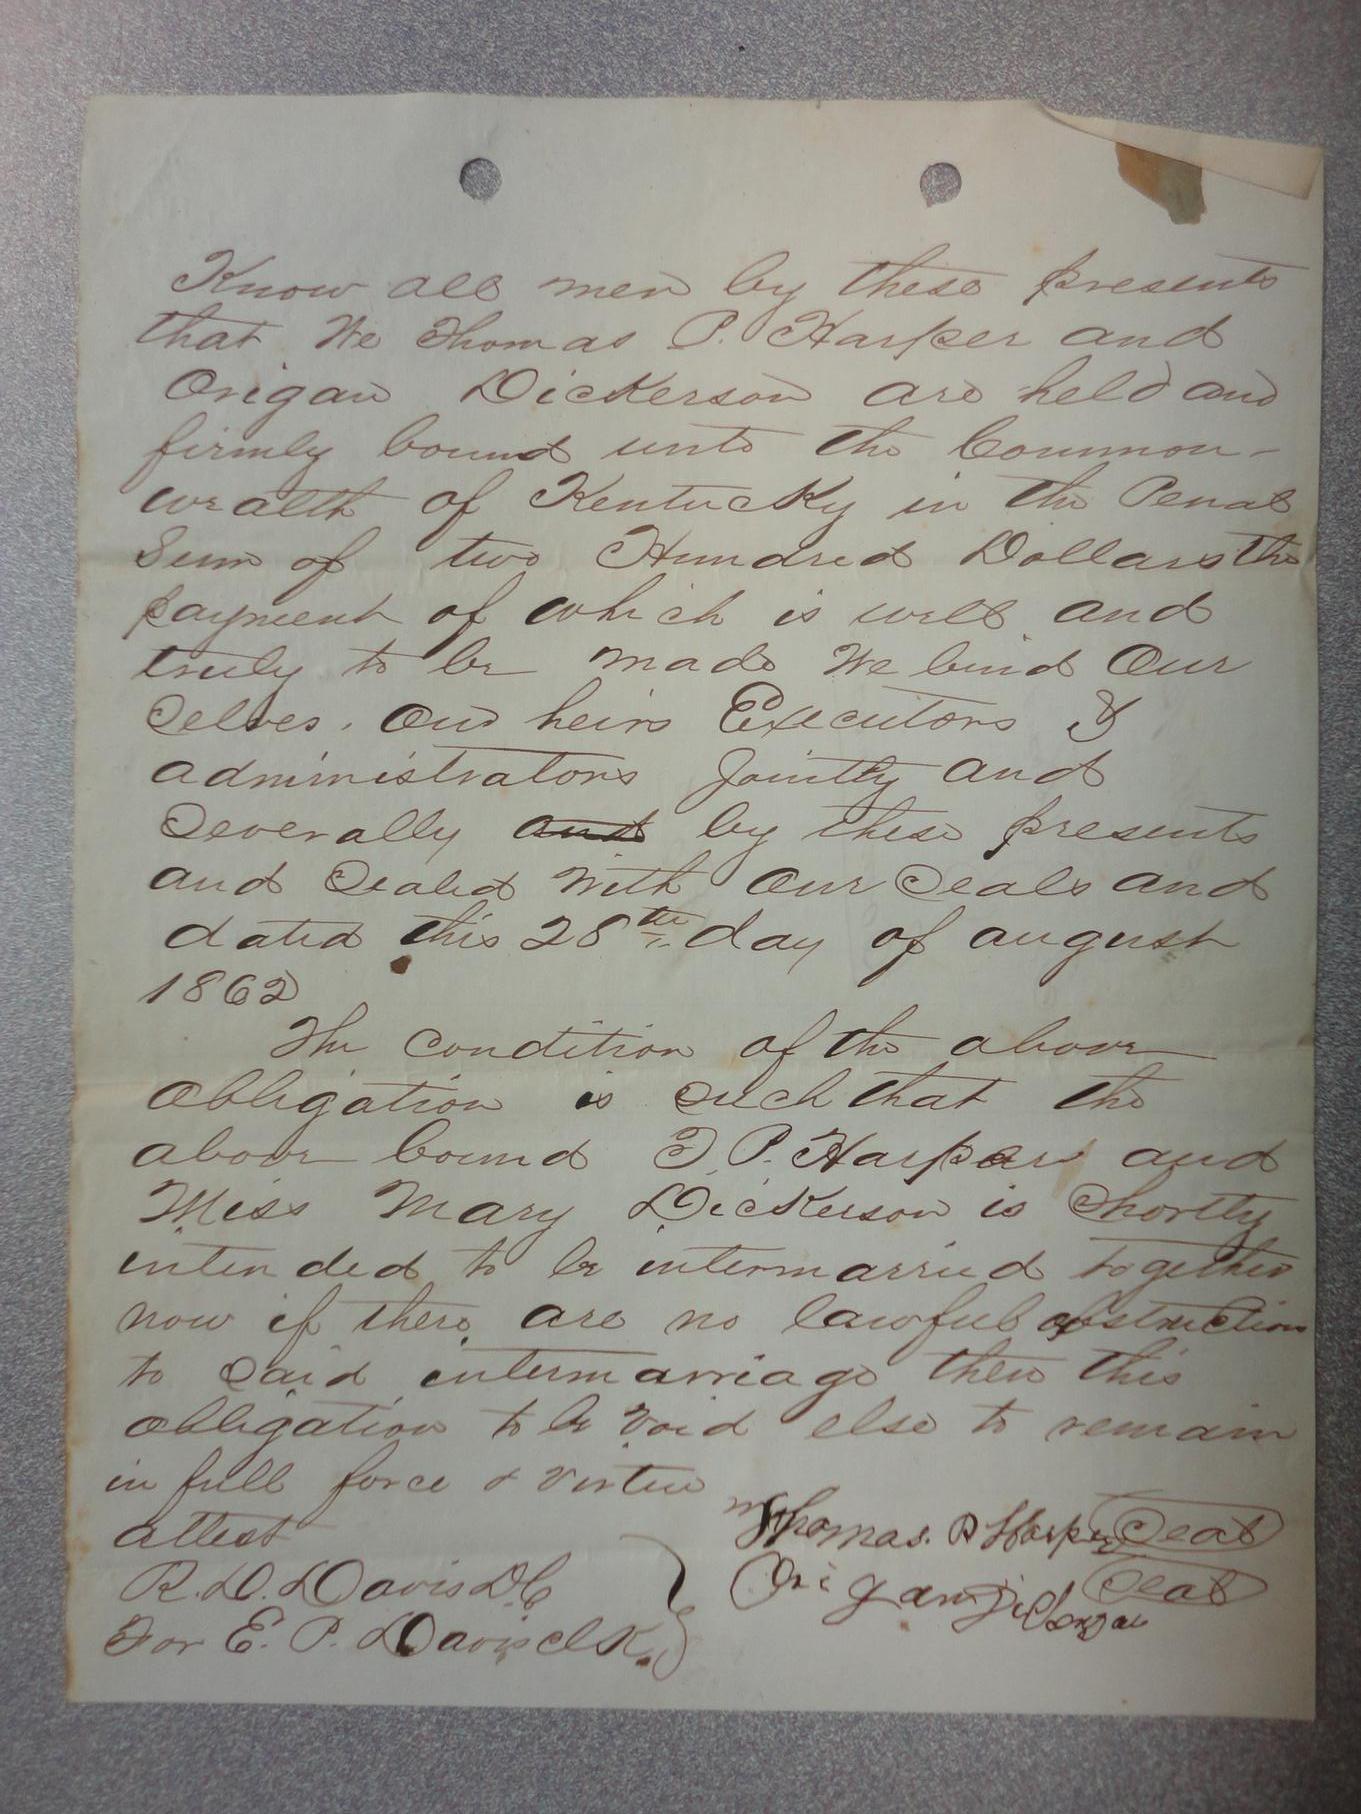 Know all men by these presents
that We Thomas P. Harper and
Origan Dickerson are held and
firmly bound unto the Common-
wealth of Kentucky in the Penal
Sum of two Hundred Dollars the
payment of which is well and
truly to be made We bind Our
Selves. Our heirs Executors &
administrators Jointly and
Severally and by these presents
and Sealed With Our Seals and
dated this 28th day of august
1862
The Condition of the above
obligation is Such that the
above bound T. P. Harper and
Miss Mary Dickerson is Shortly
intended to be intermarried together
now if there are no lawful obstruction
to Said intermarriage then this
obligation to be Void else to remain
in full force & Virtue
attest
Thomas. P Harper Seal
R. D. Davis D.C
Origan Seal
For E. P. Davis clk.